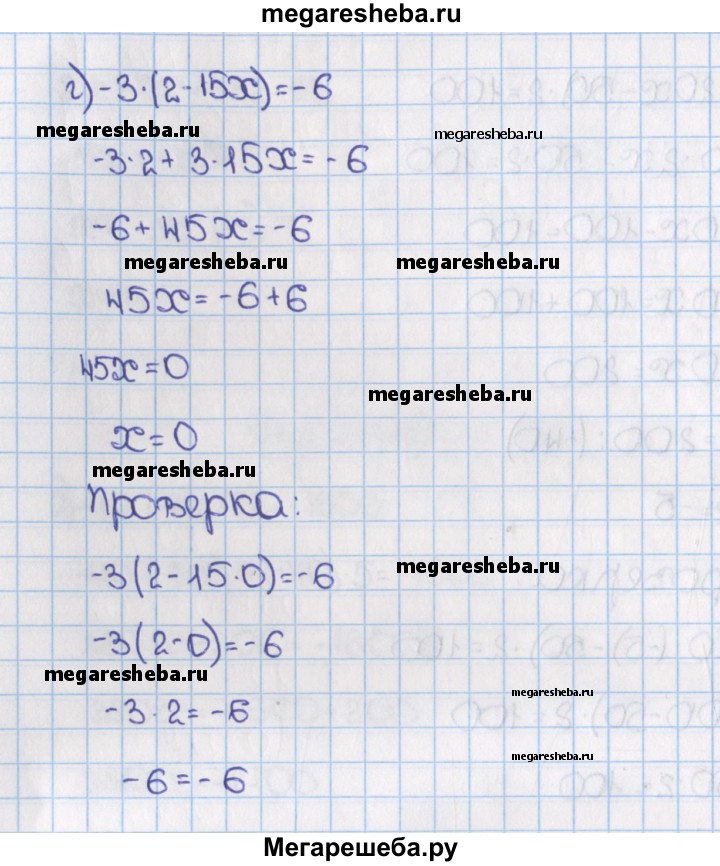 megaresheba.ru
г) -3·(2-15x)=-6
megaresheba.ru
megaresheba.ru
-3·2+3·15x=-6
-6+45x=-6
megaresheba.ru megaresheba.ru
45x=-6+6
45x=0
megaresheba.ru
x=0
megaresheba.ru
Проверка:
megaresheba.ru
-3(2-15·0)=-6
-3(2-0)=-6
megaresheba.ru
megaresheba.ru
-3·2=-6
megaresheba.ru
-6=-6
Мегарешеба.ру